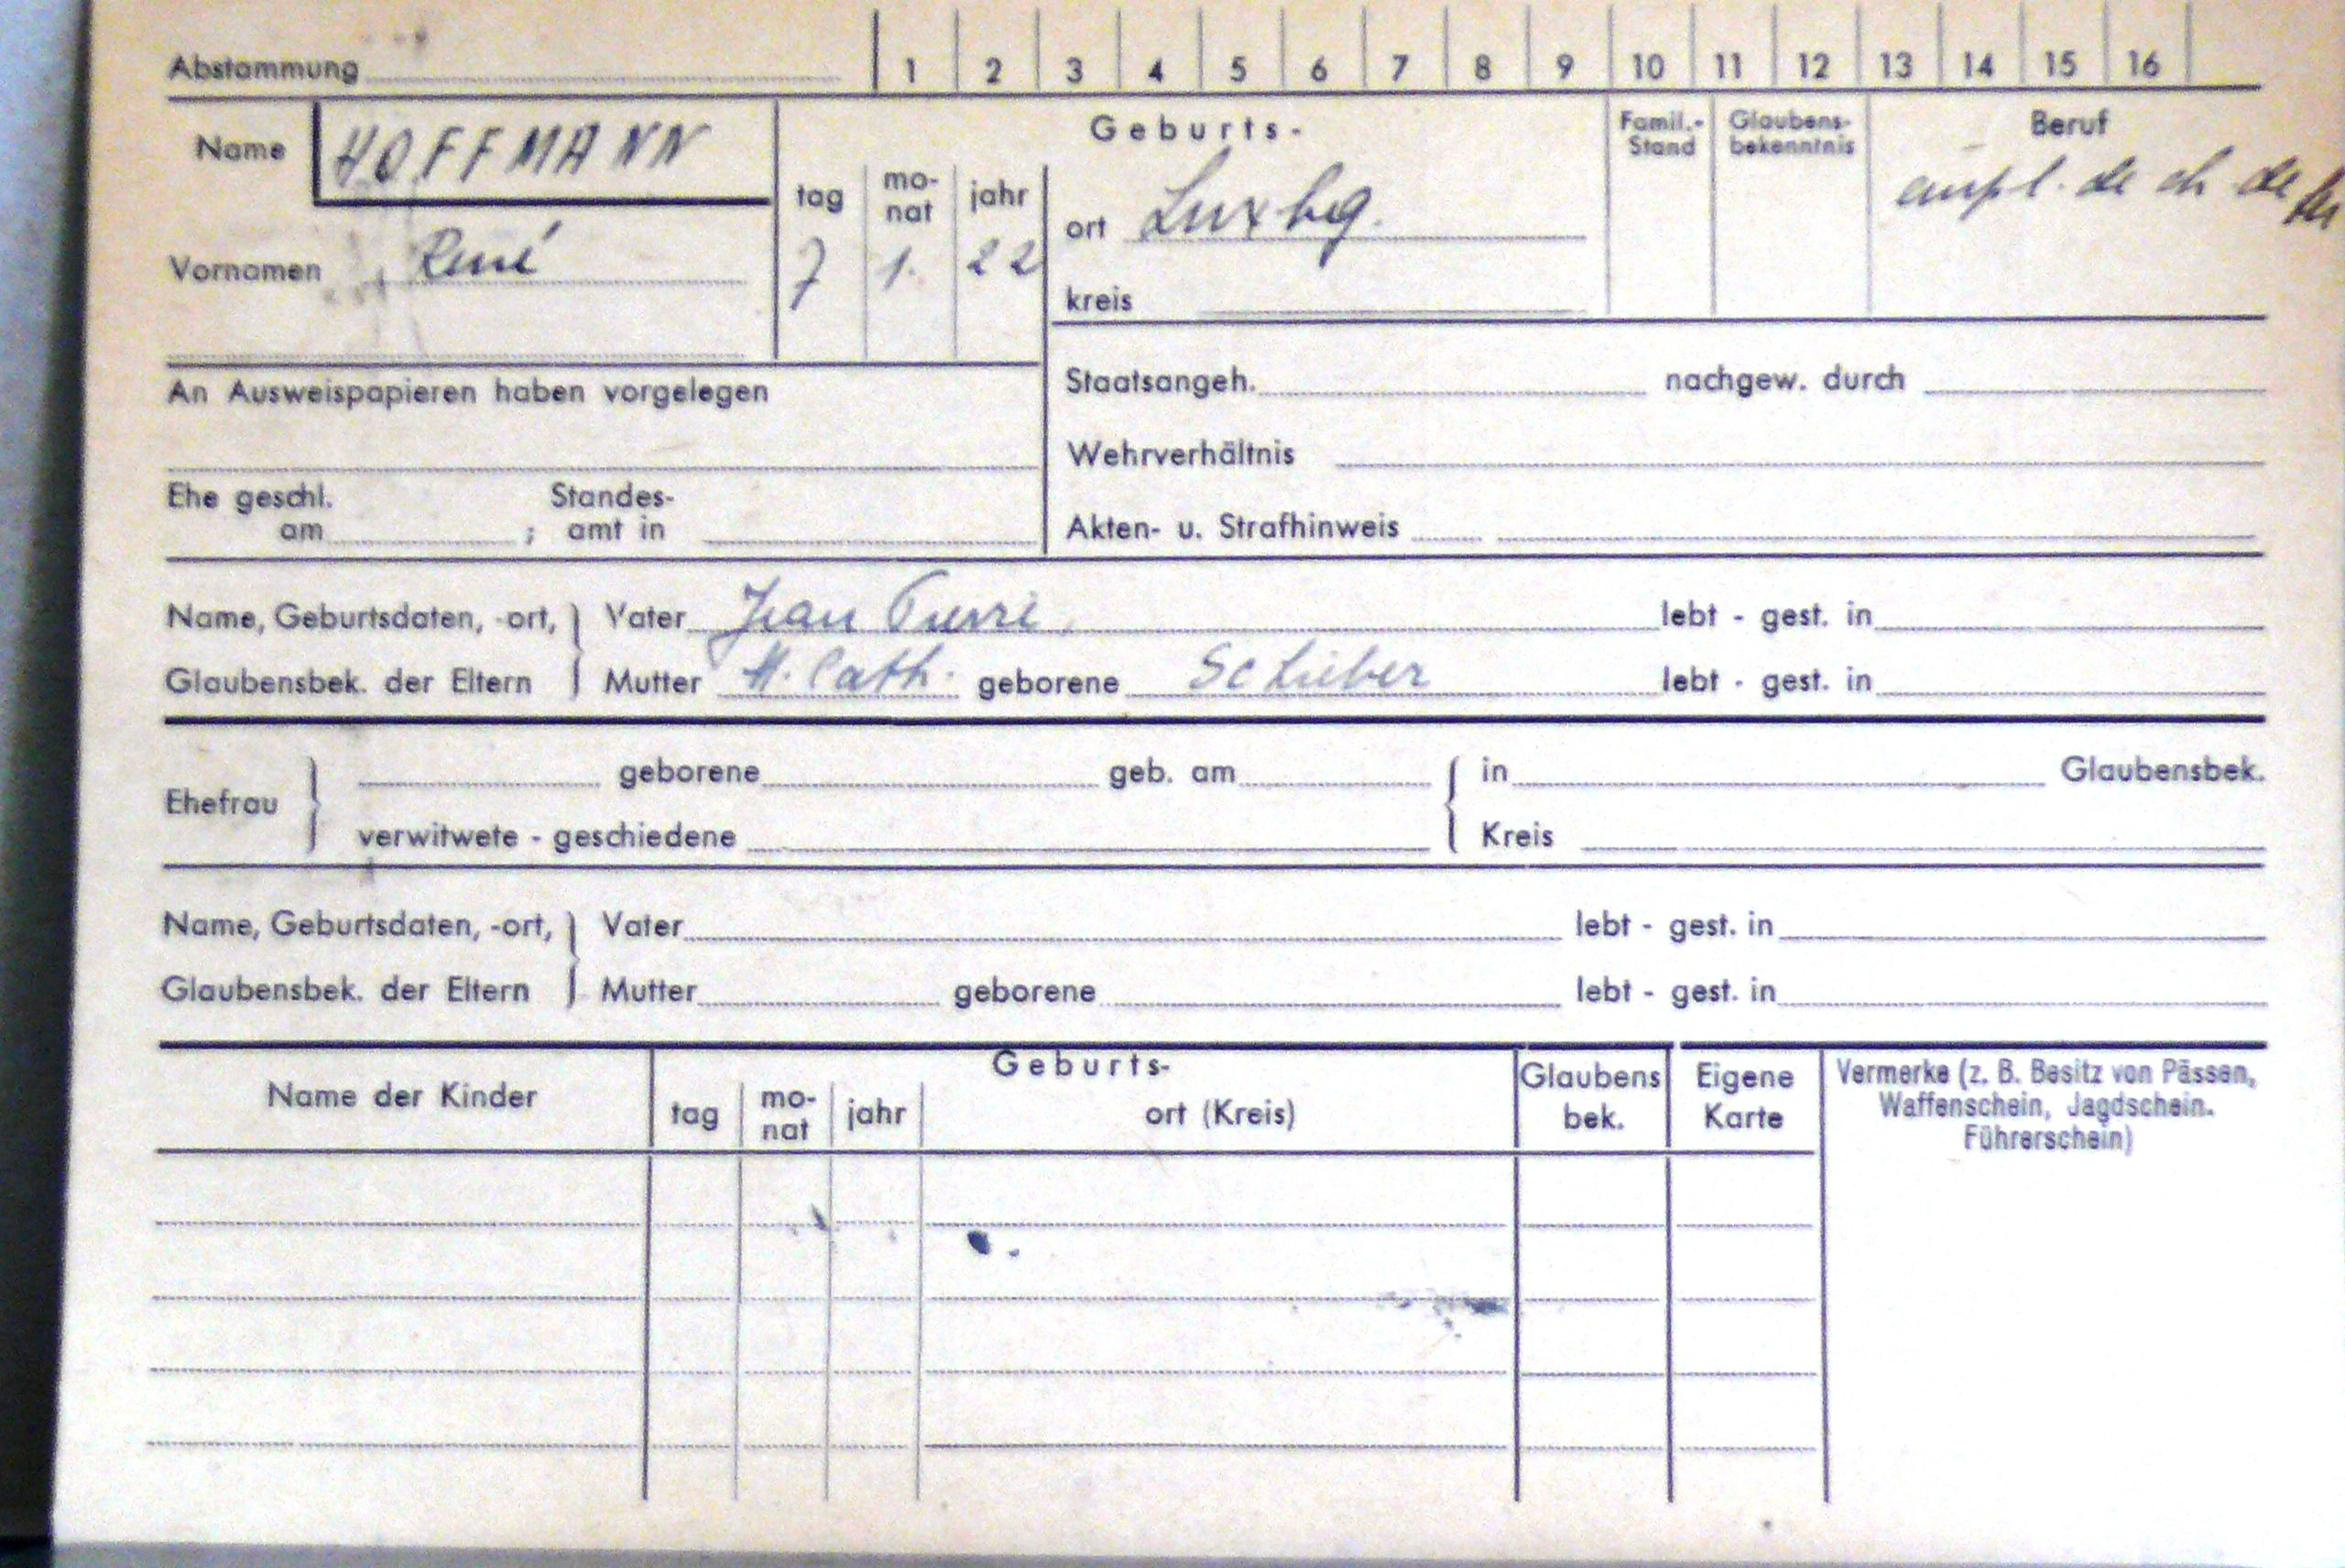 Abstammung 1 2 3 4 5 6 7 8 9 10 11 12 13 14 15 16
Name HOFFMANN
Geburts-
Famil.-
Stand
Glaubens-
bekenntnis
Beruf
empl. de ch de
Vornamen René
tag
mo-
nat
jahr
7 1. 22
ort Luxbg.
kreis
An Ausweispapieren haben vorgelegen
Staatsangeh. nachgew. durch
Wehrverhältnis
Ehe geschl.
am ;
Standes-
amt in
Akten- u. Strafhinweis
Name, Geburtsdaten, -ort, Vater Jean Pierre lebt - gest. in
Glaubensbek. der Eltern Mutter Cath. geborene lebt - gest. in
Ehefrau
geborene geb. am in Glaubensbek.
verwitwete - geschiedene Kreis
Name, Geburtsdaten, -ort, Vater lebt - gest. in
Glaubensbek. der Eltern Mutter geborene lebt - gest. in
Name der Kinder
Geburts-
tag
mo-
nat
jahr
ort (Kreis)
Glaubens
bek.
Eigene
Karte
Vermerke (z. B. Besitz von Pässen,
Waffenschein, Jagdschein.
Führerschein)